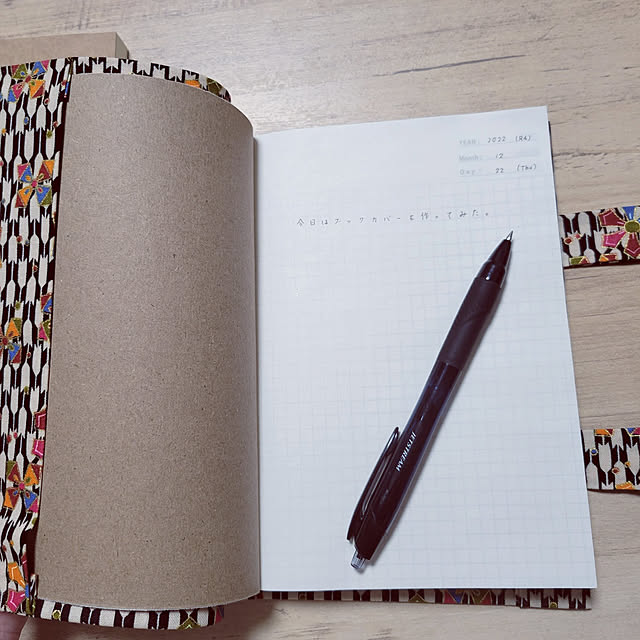 YEAR: 2022 (R4)
Month: 12
Day: 22 (Thu)
今日はブックカバーを作ってみた。
JETSTREAM